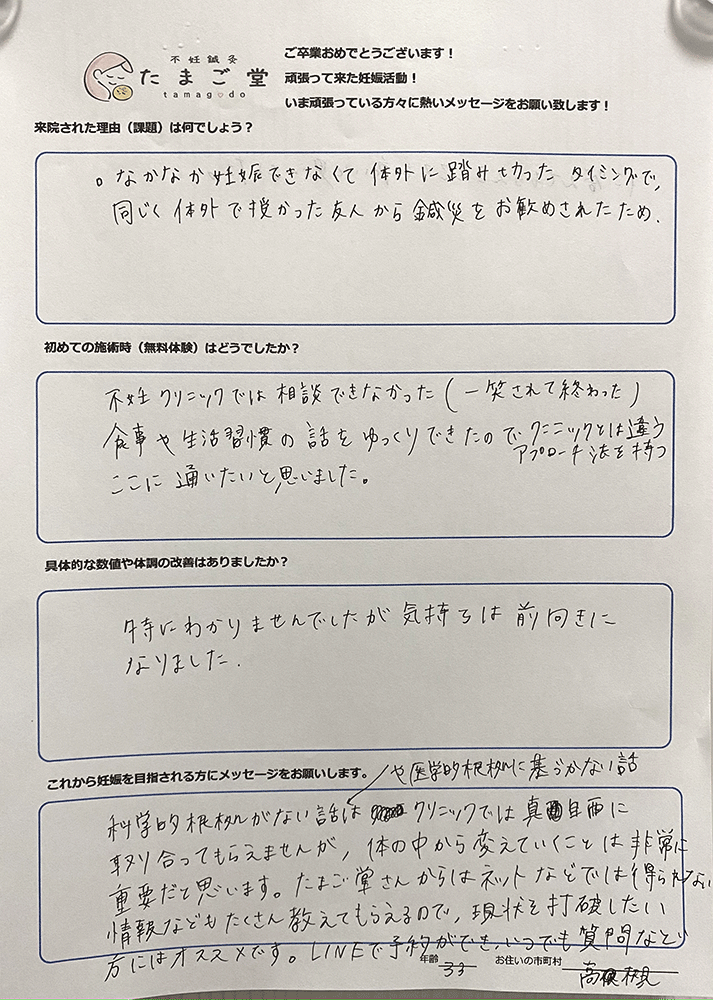 不妊鍼灸
たまご堂
tamagodo
ご卒業おめでとうございます！
頑張って来た妊娠活動！
いま頑張っている方々に熱いメッセージをお願い致します！
来院された理由（課題）は何でしょう？
。なかなか妊娠できなくて体外に踏み切ったタイミングで、
同じく体外で授かった友人から鍼灸をお勧めされたため.
初めての施術時（無料体験）はどうでしたか？
不妊クリニックでは相談できなかった（一笑されて終わった）
食事や生活習慣の話をゆっくりできたので、クリニックとは違う
アプローチ法を持つ
ここに通いたいと思いました。
具体的な数値や体調の改善はありましたか？
特にわかりませんでしたが気持ちは前向きに
なりました.
これから妊娠を目指される方にメッセージをお願いします。
や医学的根拠に基づかない話
科学的根拠がない話は クリニックでは真面目に
取り合ってもらえませんが、体の中から変えていくことは非常に
重要だと思います。たまご堂さんからはネットなどでは得られない
情報などもたくさん教えてもらえるので、現状を打破したい
方にはオススメです。LINEで予約ができ、いつでも質問など
年齢 33 お住いの市町村